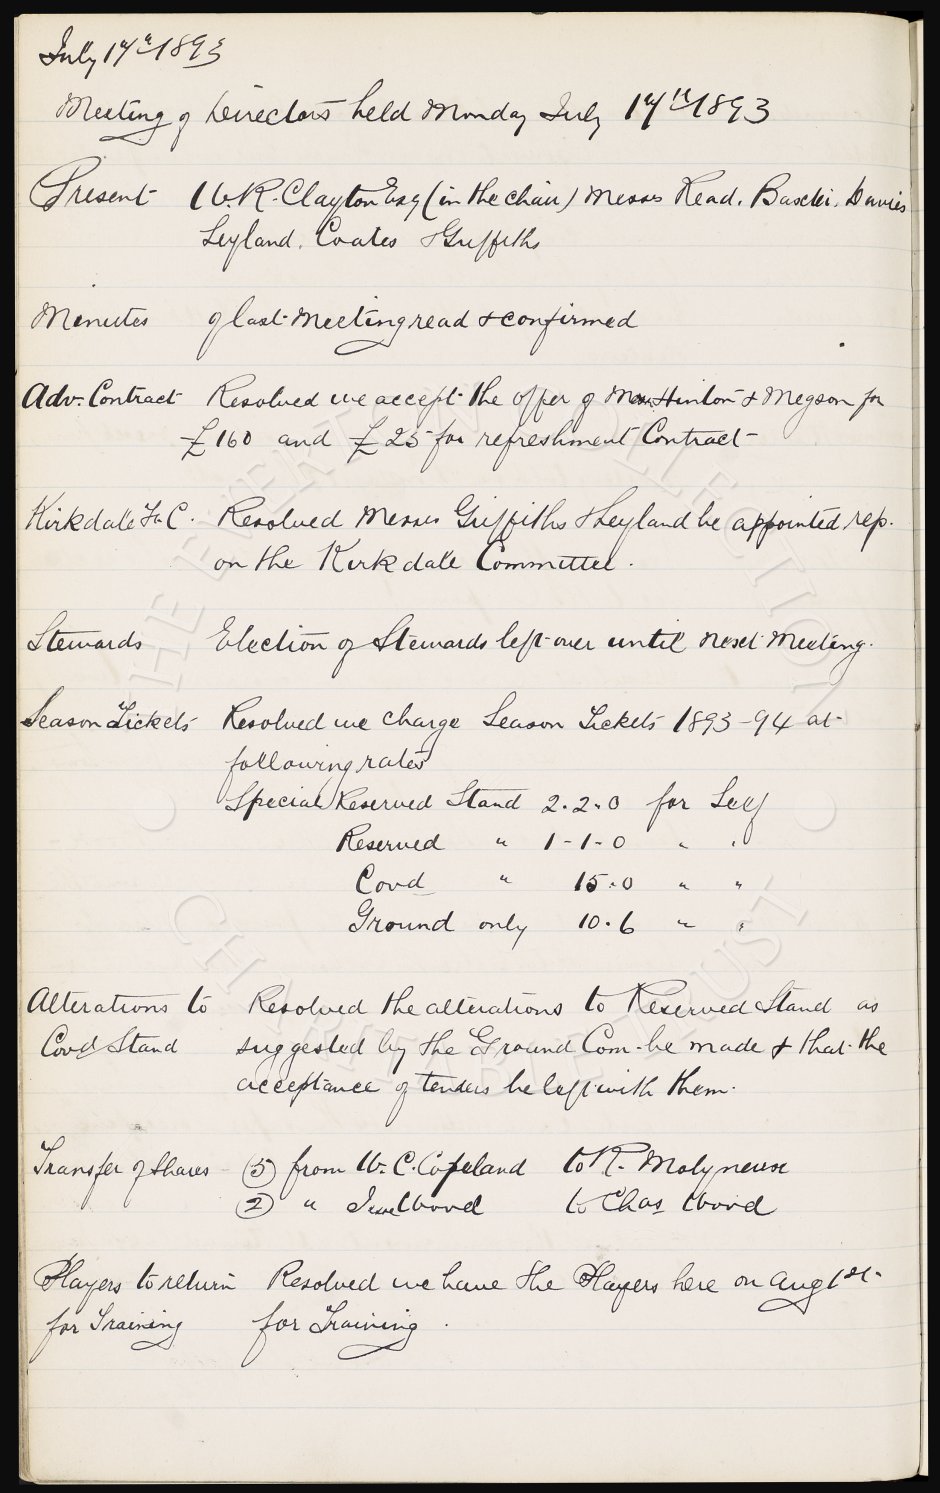 July 17th 1893
Meeting of Directors held Monday July 17th 1893
Present W. R. Clayton Esq (in the chair) Messrs Read. Baxter. Davies
Leyland. Coates & Griffiths
Minutes of last Meeting read & confirmed
Adv. Contract Resolved we accept the offer of Hinton & Megson for
£160 and £25 for refreshment Contract
Kirkdale F. C. Resolved Messrs Griffiths & Leyland be appointed rep.
on the Kirkdale Committee.
Stewards Election of Stewards left over until next Meeting.
Season Tickets Resolved we charge Season Tickets 1893-94 at
following rates
Special Reserved Stand 2.2.0 for Self
Reserved " 1-1-0 " "
Covd " 15.0 " "
Ground only 10.6 " "
Alterations to Resolved the alterations to Reserved Stand as
Covd Stand suggested by the Ground Com. be made & that the
acceptance of tenders be left with them.
Transfer of Shares (5) from W. C. Copeland to R. Molyneux
(2) " Wood to Chas Wood
Players to return Resolved we have the Players here on Aug 1st
for Training for Training.
THE EVERTON COLLECTION
CHARITABLE TRUST